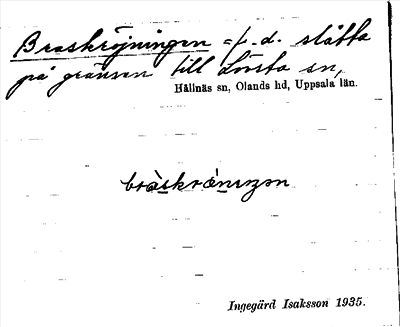 Braskröjningen = f. d. slåtta
på gränsen till Lövsta sn,
Hållnäs sn, Olands hd, Uppsala län.
bràskrǿnıŋən
Ingegärd Isaksson 1935.